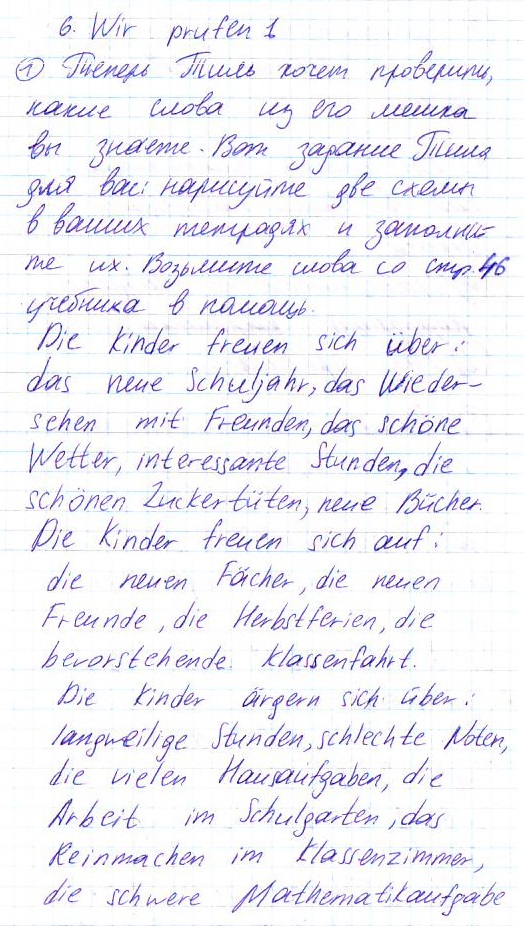 6. Wir prüfen 1
① Теперь Тиль хочет проверить,
какие слова из его мешка
вы знаете. Вот задание Тиля
для вас: нарисуйте две схемы
в ваших тетрадях и заполни-
те их. Возьмите слова со стр. 46
учебника в помощь.
Die Kinder freuen sich über:
das neue Schuljahr, das Wieder-
sehen mit Freunden, das schöne
Wetter, interessante Stunden, die
schönen Zuckertüten, neue Bücher.
Die Kinder freuen sich auf:
die neuen Fächer, die neuen
Freunde, die Herbstferien, die
bevorstehende Klassenfahrt.
Die Kinder ärgern sich über:
langweilige Stunden, schlechte Noten,
die vielen Hausaufgaben, die
Arbeit im Schulgarten, das
Reinmachen im Klassenzimmer,
die schwere Mathematikaufgabe